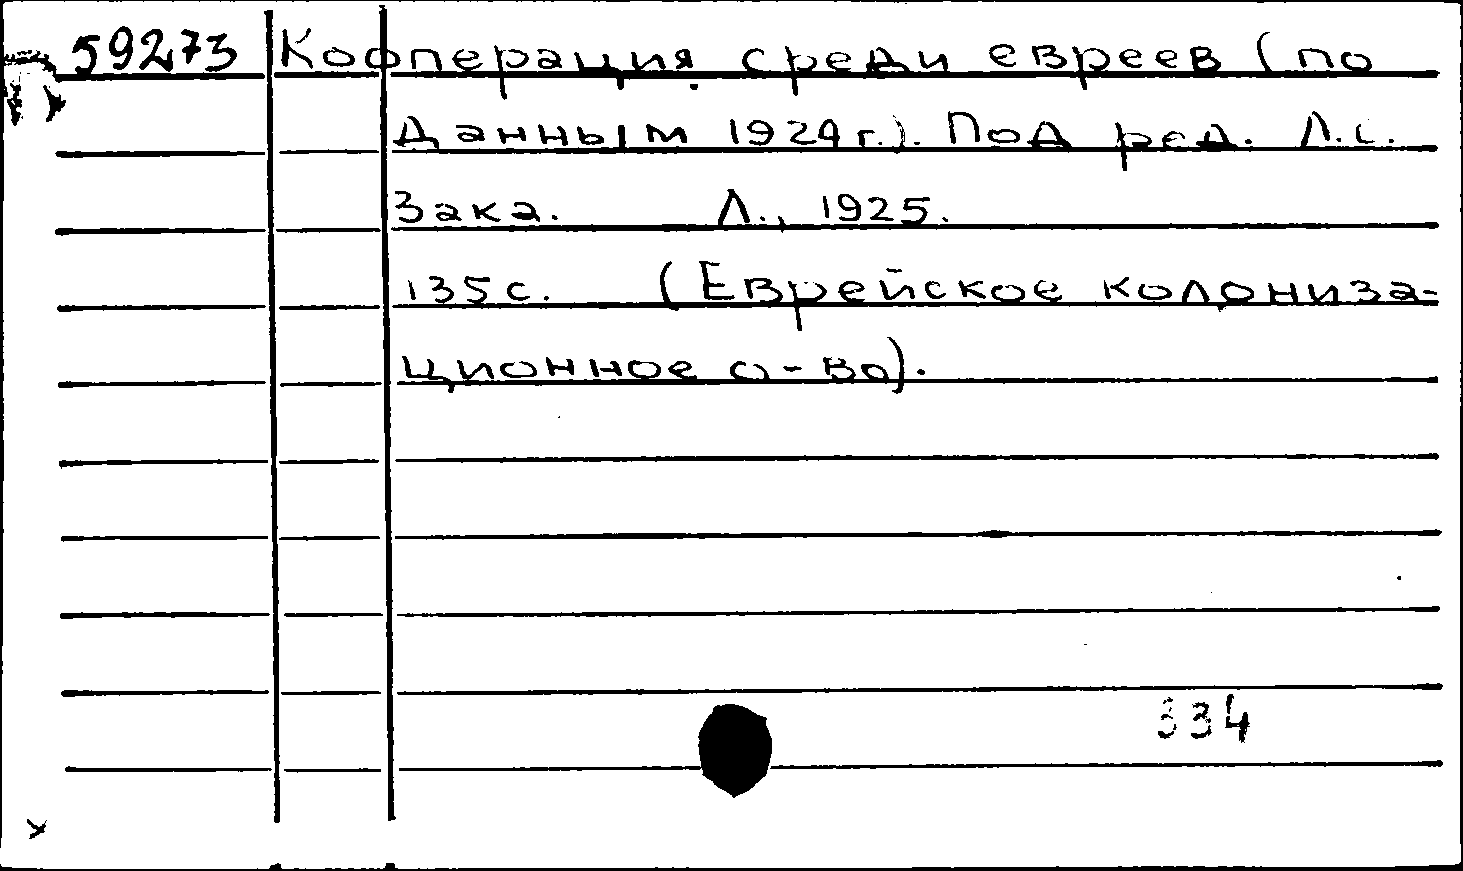 59273 Кооперация среди евреев (по
данным 1924 г.). Под ред. Л.С.
Зака. Л., 1925.
135 с. (Еврейское колониза-
ционное о-во).
334